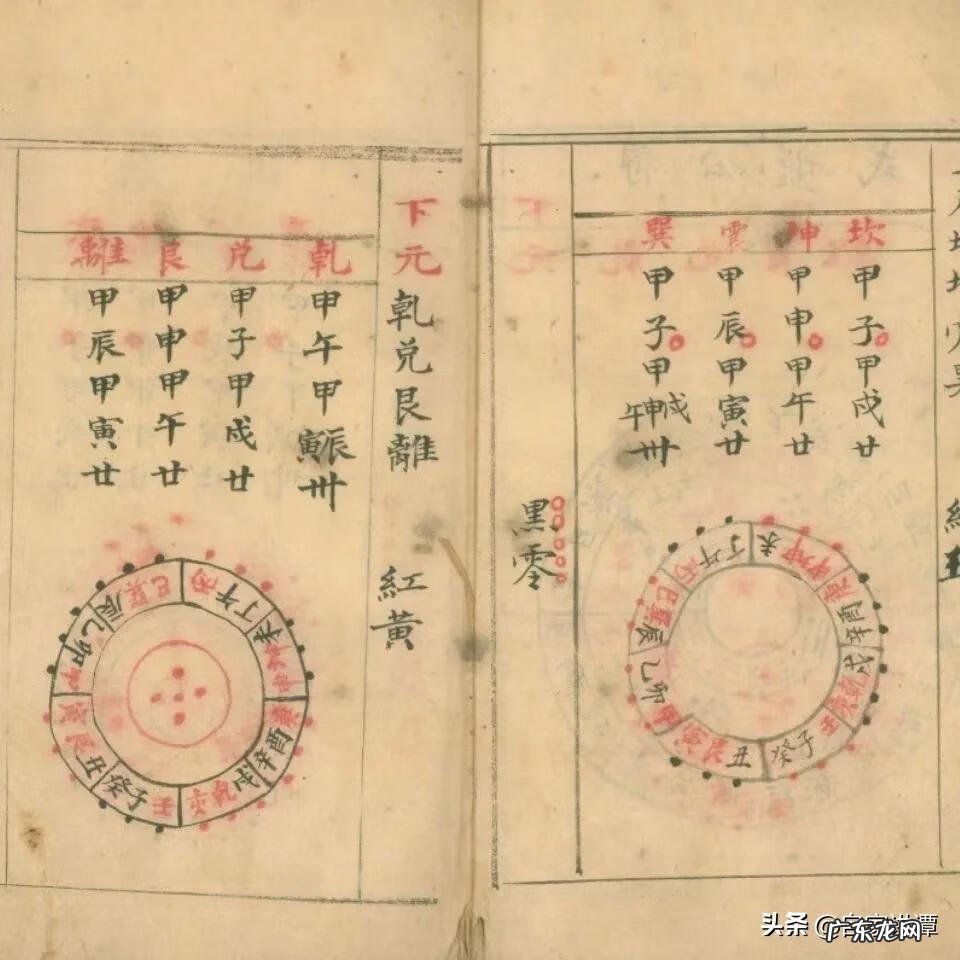 坎 甲子甲戍廿
坤 甲申甲午廿
甲辰甲寅廿
巽 甲子甲戍申午卅
未坤申庚酉辛戍乾亥壬子癸丑艮寅甲卯乙辰巽巳丙午丁
黑零
下元 乹兌艮離 紅黃
乹 甲午甲辰寅卅
兌 甲子甲戍廿
艮 甲申甲午廿
離 甲辰甲寅廿
丙午丁未坤申庚酉辛戍乹亥壬子癸丑艮寅甲卯乙辰巽巳
头条
广东龙网